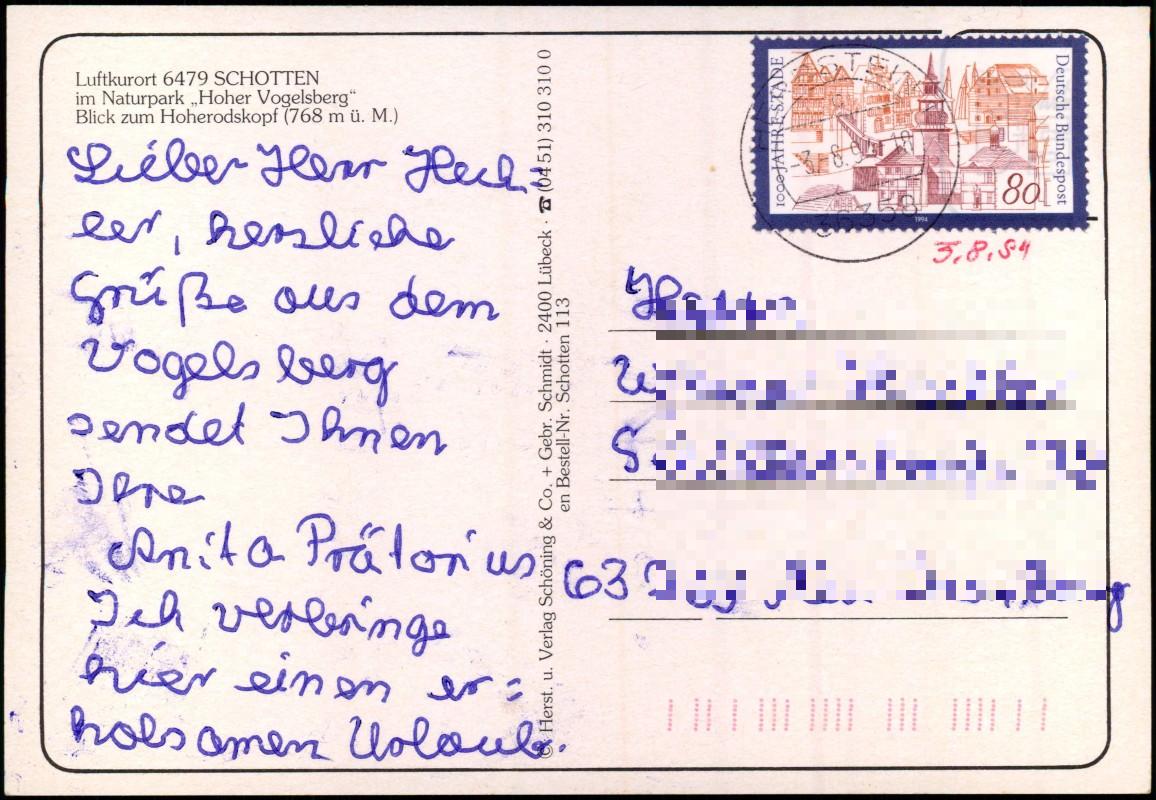 Luftkurort 6479 SCHOTTEN
im Naturpark „Hoher Vogelsberg“
Blick zum Hoherodskopf (768 m ü. M.)
Lieber Herr Hech-
ler, herzliche
Grüße aus dem
Vogelsberg
sendet Ihnen
Ihre
Anita Prätorius
Ich verbringe
hier einen er=
holsamen Urlaub.
© Herst. u. Verlag Schöning & Co. + Gebr. Schmidt · 2400 Lübeck · ☎ (04 51) 310 310 0
en Bestell-Nr. Schotten 113
1000 JAHRE STADE
Deutsche Bundespost
80
1994
36358
3.8.94
Herrn
63